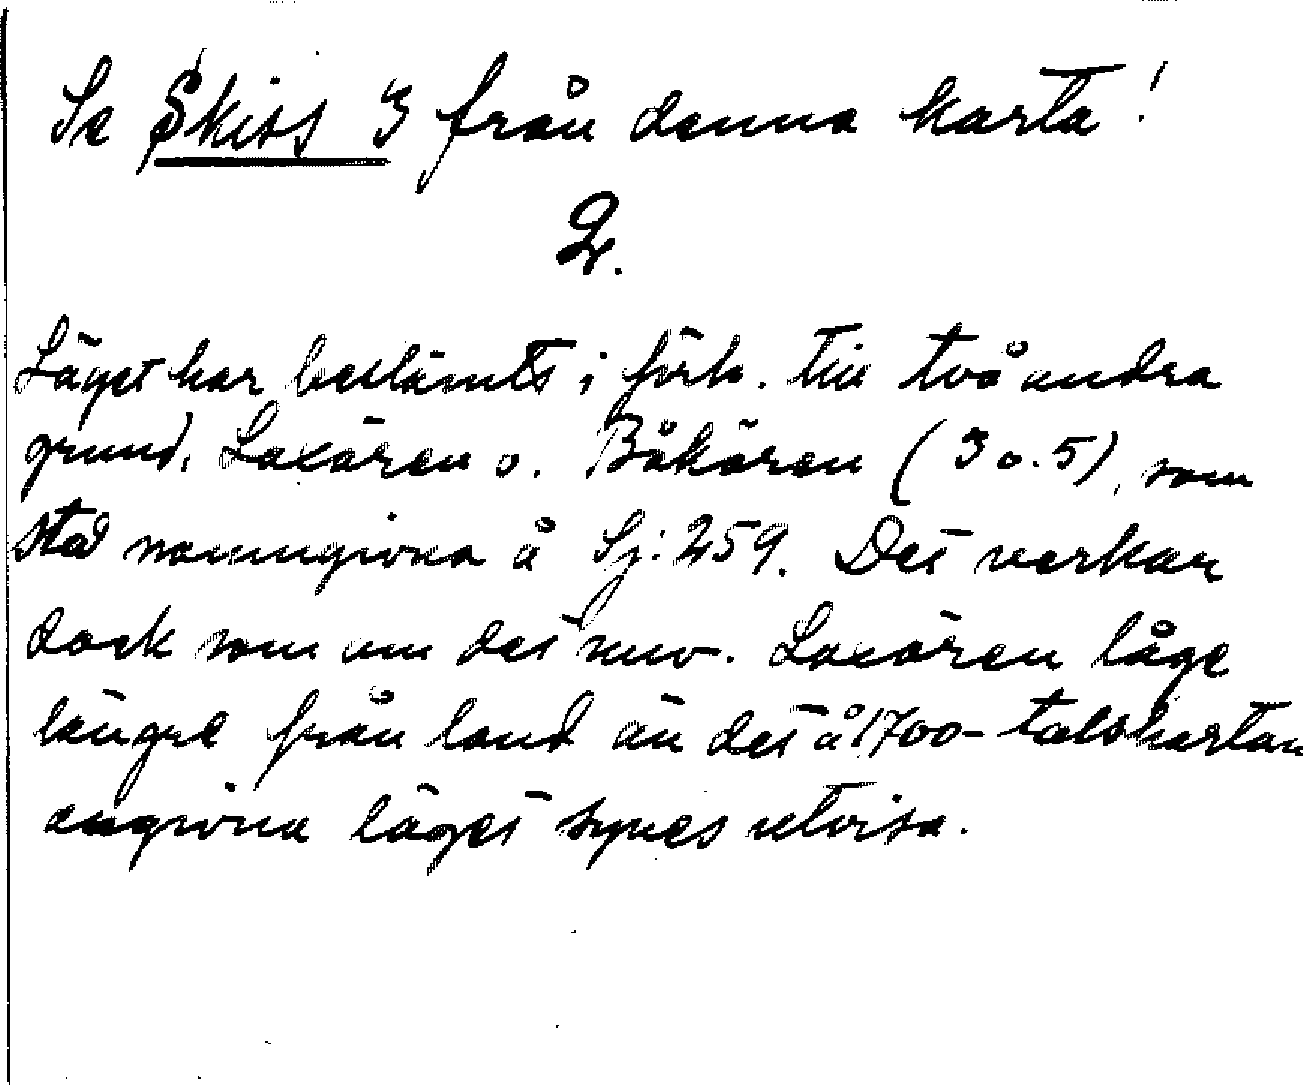 Se Skiss 3 från denna karta!
2.
Läget har bestämts i förh. till två andra
grund, Laxören o. Båkören (3 o. 5), som
stå namngivna å Sj: 259. Det verkar
dock som om det nuv. Laxören låge
längre från land än det å 1700-talskartan
angivna läget synes utvisa.